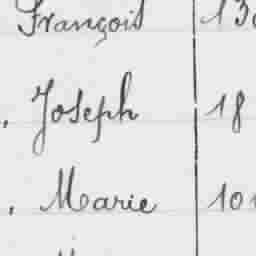 François 130
, Joseph 18
, Marie 101